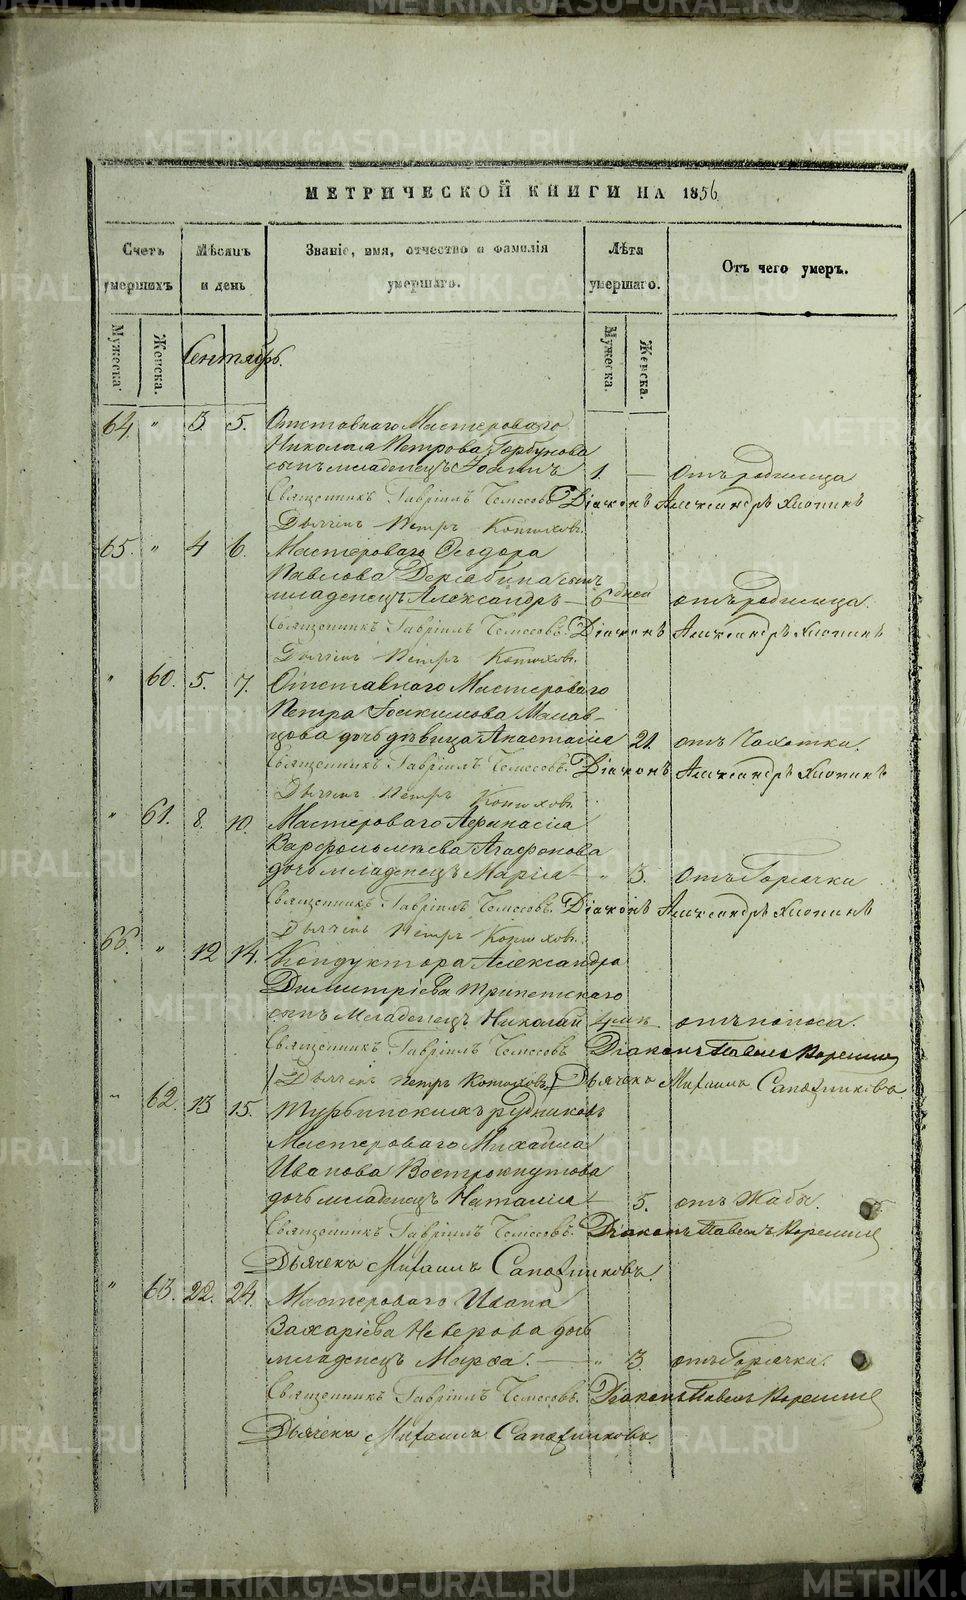 МЕТРИЧЕСКОЙ КНИГИ НА 1856
Счетъ умершихъ
Мѣсяцъ и день
Званіе, имя, отчество и фамилія умершаго.
Лѣта умершаго.
Отъ чего умеръ.
Мужеска. Женска.
Сентябрь.
Мужеска. Женска.
64. " 3. 5. Отставнаго Мастероваго
Николая Петрова Горбунова
сынъ младенецъ Іоаннъ 1. — отъ родимца
Священникъ Гавріилъ Діаконъ Александръ Хлопинъ
Дьячекъ Петръ Конюховъ.
65. " 4 6. Мастероваго Ѳеодора
Павлова Дерябина сынъ
младенецъ Александръ — 6 дней отъ родимца.
Священникъ Гавріилъ Діаконъ Александръ Хлопинъ
Дьячекъ Петръ Конюховъ.
" 60. 5. 7. Отставнаго Мастероваго
Петра Іоакимова
дочь дѣвица Анастасія 21. отъ Чахотки.
Священникъ Гавріилъ Діаконъ Александръ Хлопинъ
Дьячекъ Петръ Конюховъ.
" 61. 8. 10. Мастероваго Аѳанасія
Варѳоломеева Агафонова
дочь младенецъ Марія — " 3. отъ Горячки
Священникъ Гавріилъ Діаконъ Александръ Хлопинъ
Дьячекъ Петръ Конюховъ.
66. " 12 14. Кондуктора Александра
Димитріева Трипетскаго
сынъ младенецъ Николай отъ поноса.
Священникъ Гавріилъ Діаконъ Павелъ
Дьячекъ Петръ Конюховъ. Дьячекъ Михаилъ Сапожниковъ
" 62. 13 15. Турьинскихъ рудниковъ
Мастероваго Михаила
Иванова Вострокнутова
дочь младенецъ Наталія — 5. отъ Жабы.
Священникъ Гавріилъ Діаконъ Павелъ
Дьячекъ Михаилъ Сапожниковъ.
" 63. 22. 24. Мастероваго Ивана
Захаріева Неверова дочь
младенецъ Марѳа. — " 3. отъ Горячки.
Священникъ Гавріилъ Діаконъ Павелъ
Дьячекъ Михаилъ Сапожниковъ.
METRIKI.GASO-URAL.RU